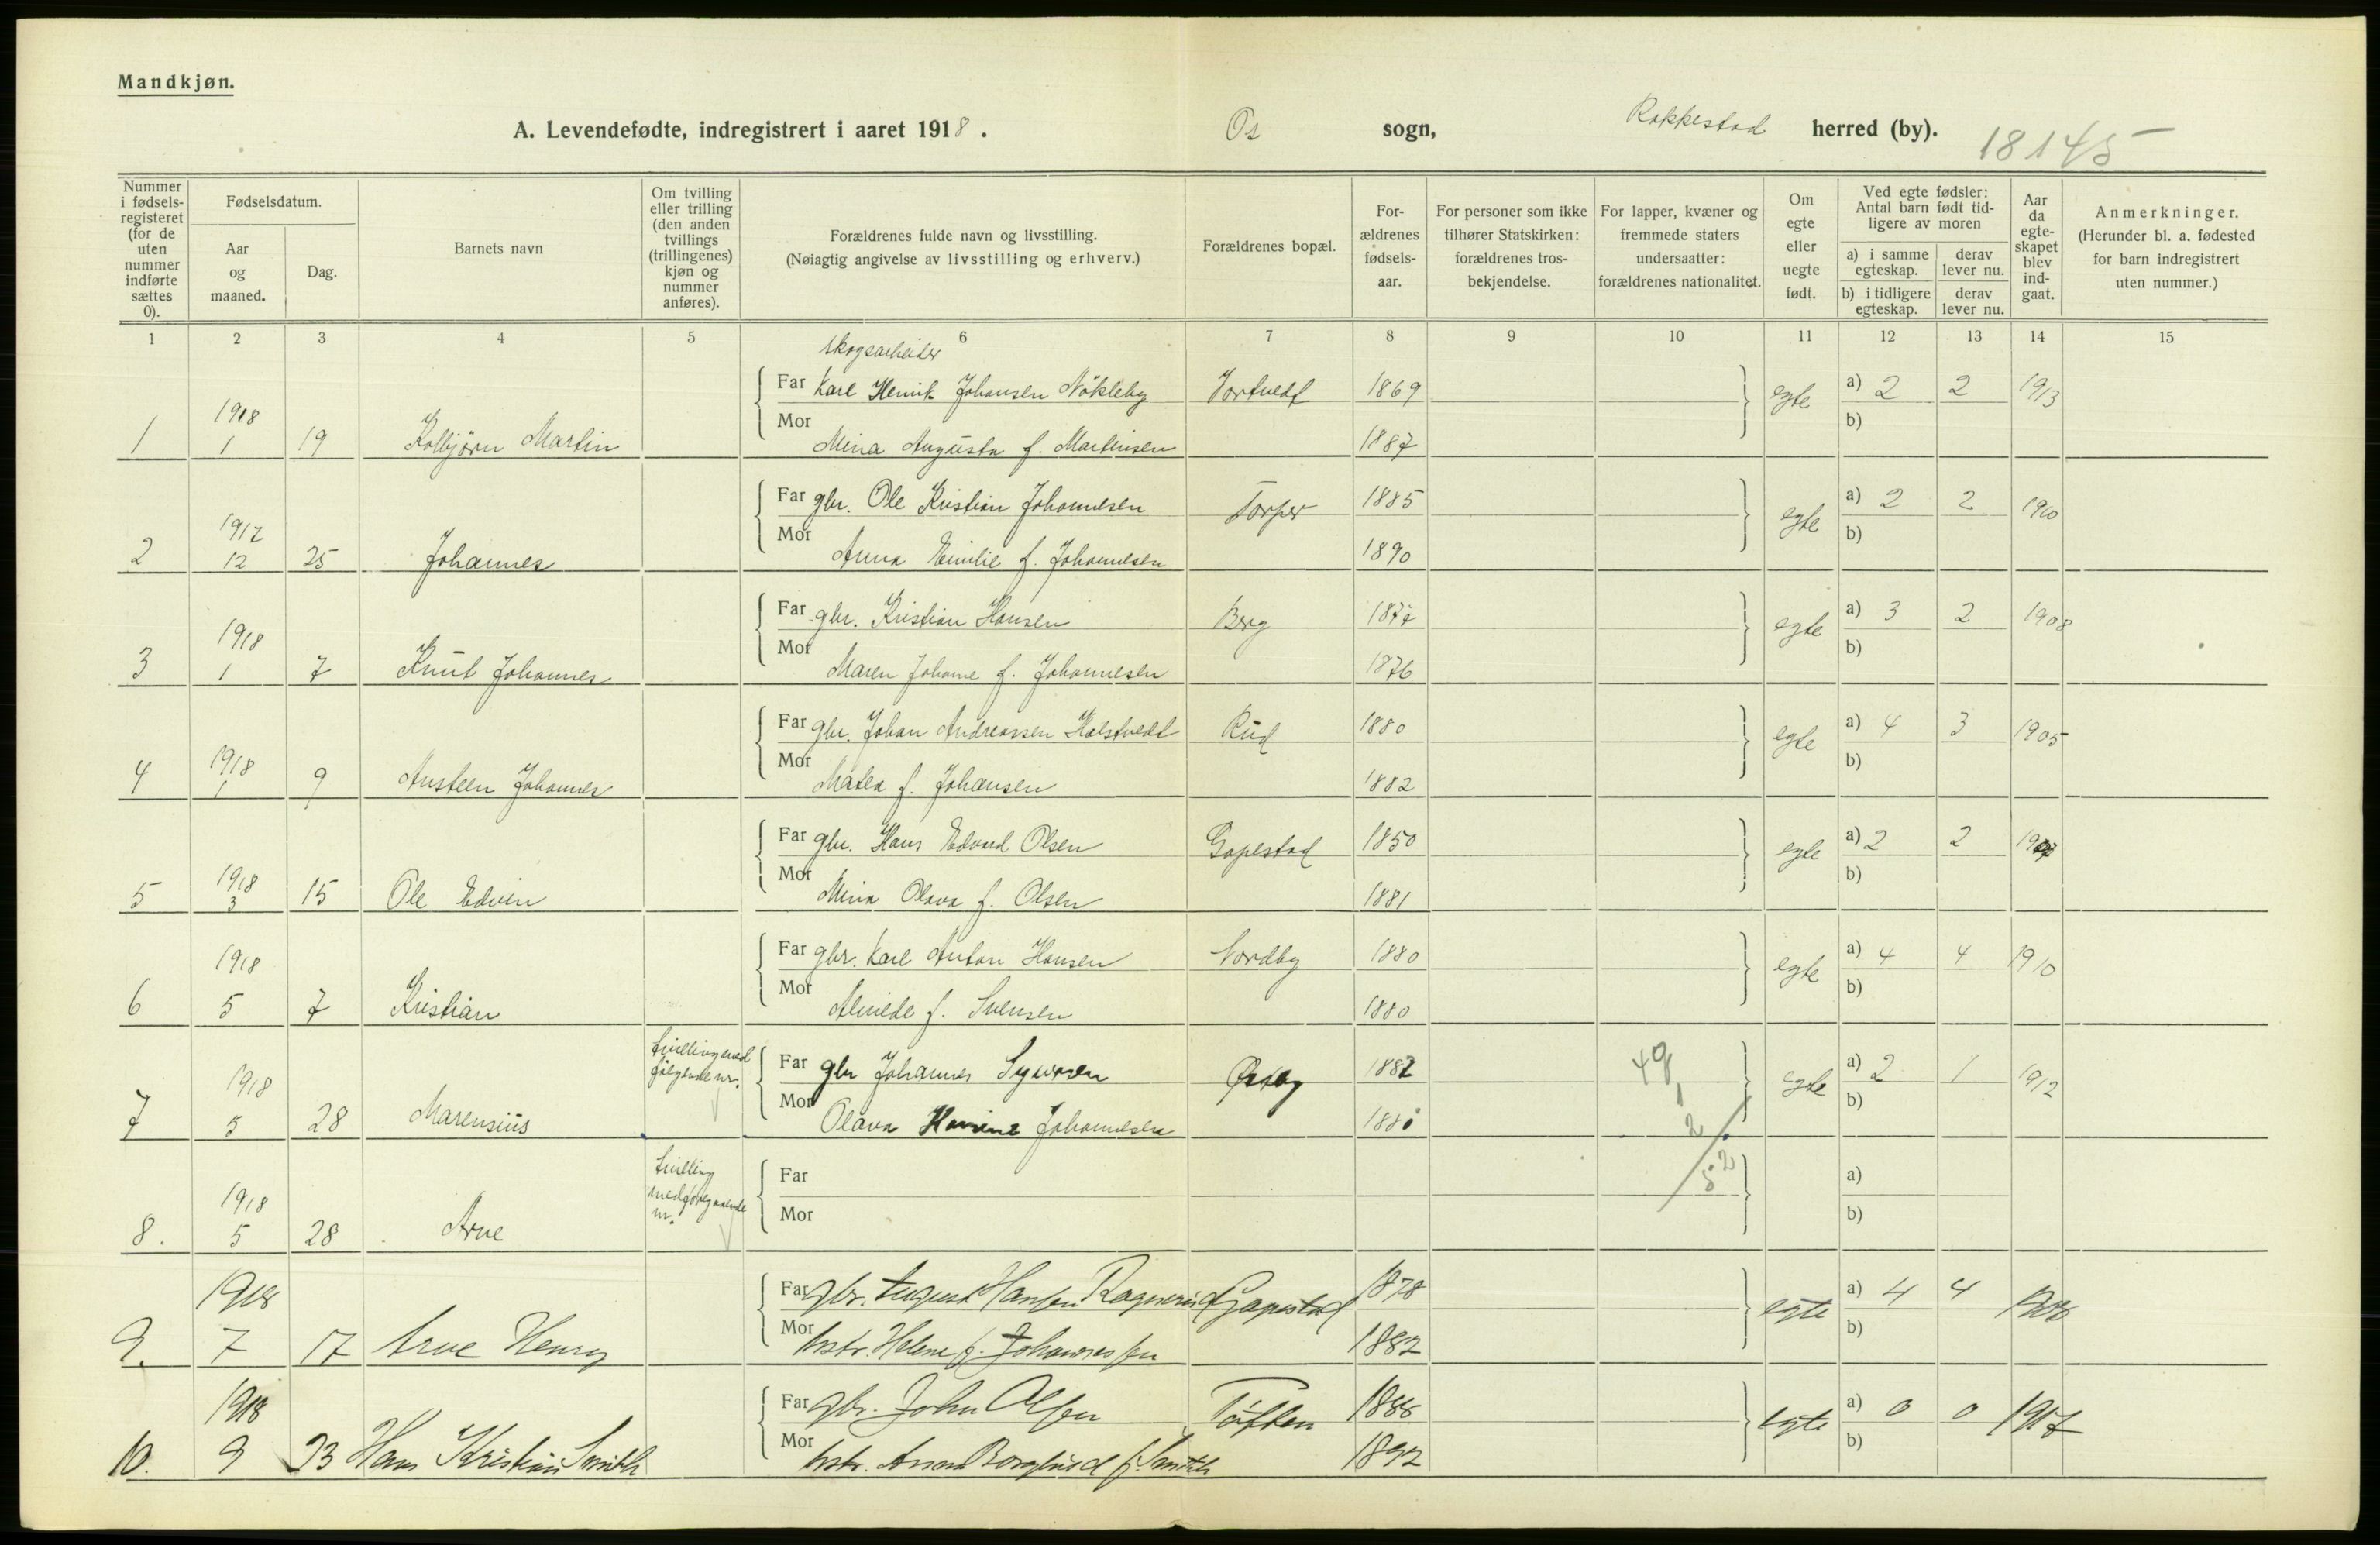 Mandkjøn.
A. Levendefødte, indregistrert i aaret 1918. Os sogn, Rakkestad herred (by).
18145
Nummer i fødselsregisteret (for de uten nummer indførte sættes 0).
Fødselsdatum.
Aar og maaned.
Dag.
Barnets navn
Om tvilling eller trilling (den anden tvillings (trillingenes) kjøn og nummer anføres).
Forældrenes fulde navn og livsstilling.
(Nøiagtig angivelse av livsstilling og erhverv.)
Forældrenes bopæl.
Forældrenes fødselsaar.
For personer som ikke tilhører Statskirken: forældrenes trosbekjendelse.
For lapper, kvæner og fremmede staters undersaatter: forældrenes nationalitet.
Om egte eller uegte født.
Ved egte fødsler: Antal barn født tidligere av moren
a) i samme egteskap. derav lever nu.
b) i tidligere egteskap. derav lever nu.
Aar da egteskapet blev indgaat.
Anmerkninger.
(Herunder bl. a. fødested for barn indregistrert uten nummer.)
1 2 3 4 5 6 7 8 9 10 11 12 13 14 15
skogsarbeider
Far Karl Henrik Johansen Nökleby Vortvedt 1869 egte a) 2 2 1913
1 1918 1 19 Kolbjörn Martin Mor Mina Augusta f. Martinsen 1887 b)
Far gbr. Ole Kristian Johannesen Torper 1885 egte a) 2 2 1910
2 1917 12 25 Johannes Mor Anna Emilie f. Johannesen 1890 b)
Far gbr. Kristian Hansen Berg 1877 egte a) 3 2 1908
3 1918 1 7 Knut Johannes Mor Maren Johanne f. Johannesen 1876 b)
Far gbr. Johan Andreassen Holstvedt Rud 1880 egte a) 4 3 1905
4 1918 1 9 Austeen Johannes Mor Matea f. Johansen 1882 b)
Far gbr. Hans Edvard Olsen Gapestad 1850 egte a) 2 2
5 1918 3 15 Ole Edvin Mor Mina Olava f. Olsen 1881 b)
Far gbr. Karl Anton Hansen Nordby 1880 egte a) 4 4 1910
6 1918 5 7 Kristian Mor Alvilde f. Svensen 1880 b)
tvilling med følgende nr. Far gbr Johannes Syversen Østby 1882 49 egte a) 2 1 1912
7 1918 5 28 Marensius Mor Olava Johannesen b)
1
2
52
tvilling med foregaaende nr. Far a)
8. 1918 5 28 Arne Mor b)
Far gbr. August Hansen Ragnerud Gapestad 1878 egte a) 4 4 1908
9. 1918 7 17 Arve Henry Mor hstr. Helene f. Johannessen 1882 b)
Far gbr. John Olsen Töften 1888 egte a) 0 0 1917
10. 1918 9 23 Hans Kristian Smith Mor hstr. Anna Borghild f. Smith 1892 b)